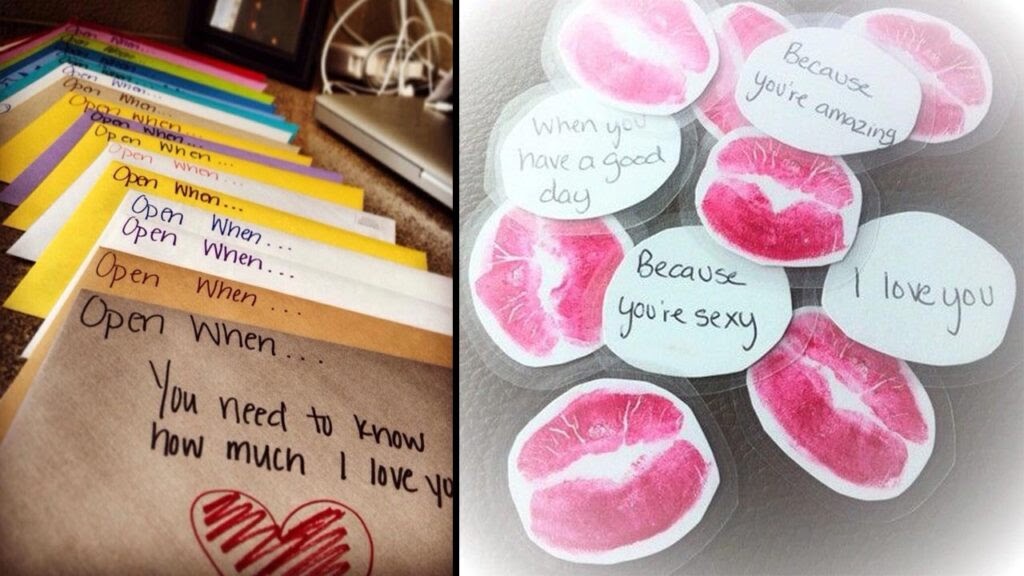 Open When...
Open When...
Open When...
Open When...
Open When...
Open When...
Open When...
Open When...
Open When...
Open When...
Open When...
Open When...
Open When...
Open When...
You need to know
how much I love yo
Because
you're amazing
When you
have a good
day
Because
you're sexy
I love you